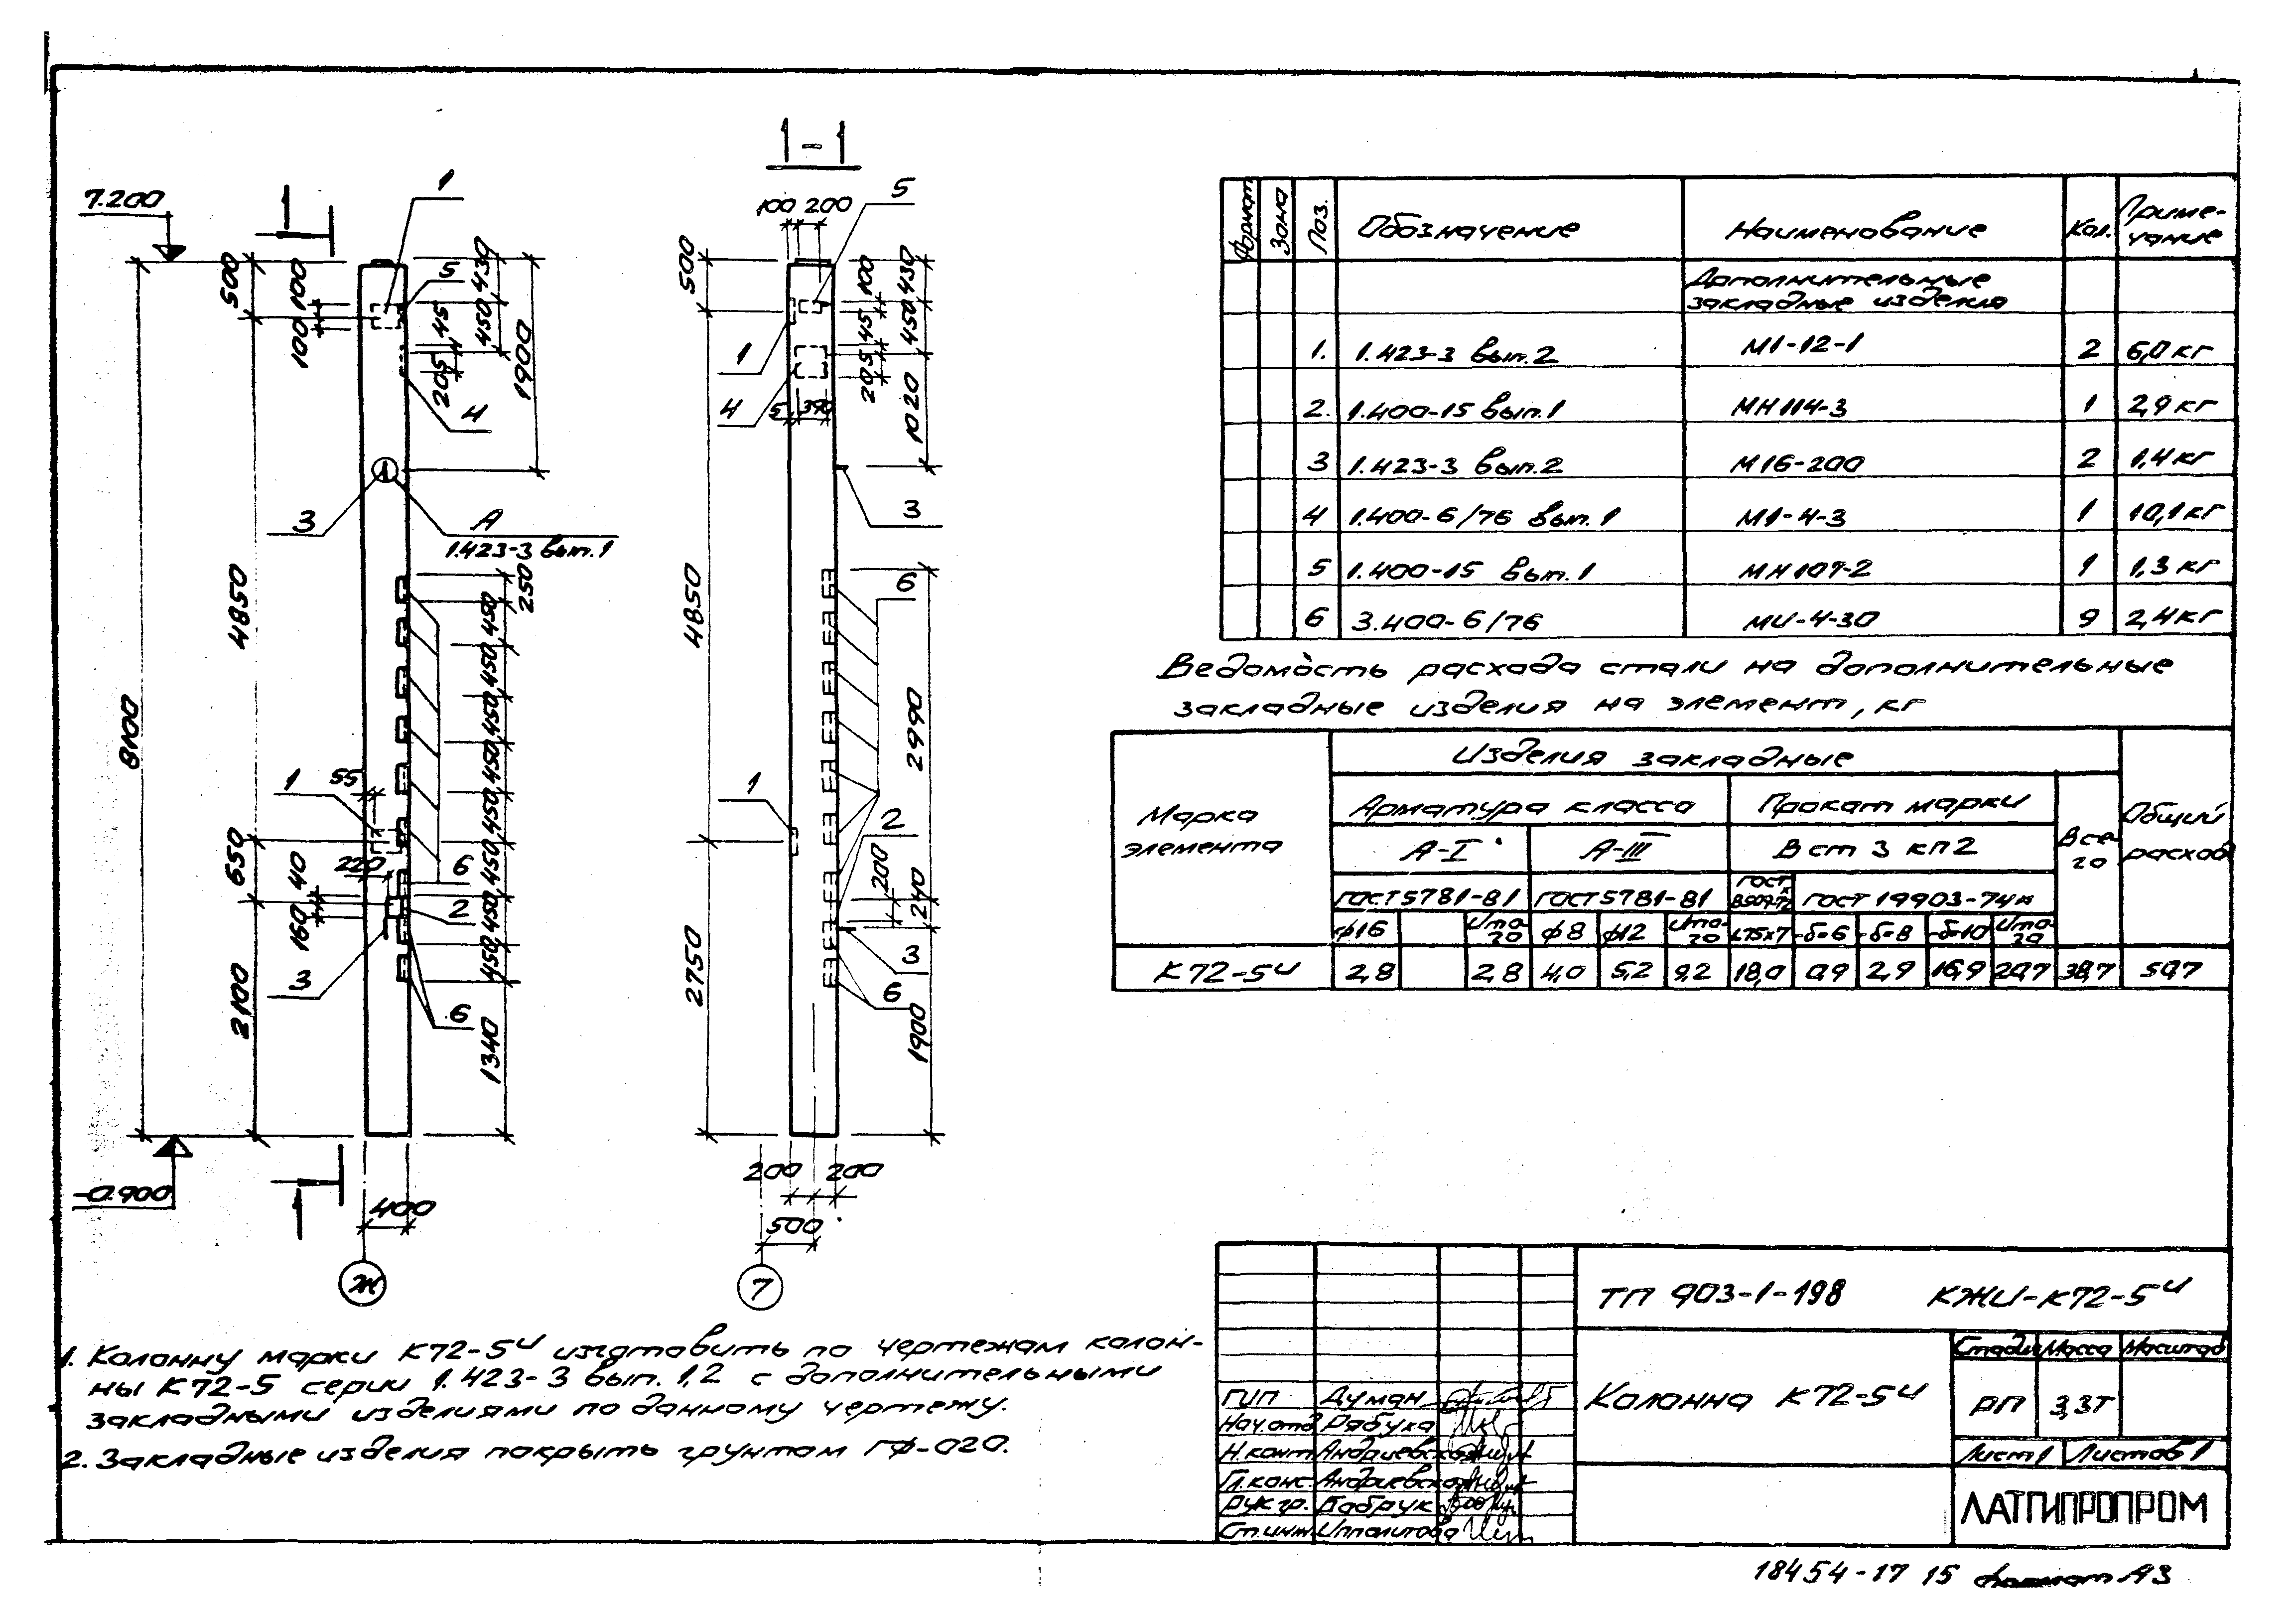 7.200
500
100
100
1
1
5
430
45
450
205
1900
4
3
А
1.423-3 вып.1
250
450
450
450
450
450
450
450
450
1340
8100
4850
650
2100
1
55
220
40
160
6
2
3
6
-0.900
400
Ж
1-1
100 200
5
500
100
430
45
450
205
1020
1
4
5
390
3
6
4850
2990
1
2
200
240
3
6
2750
1900
200 200
500
7
Формат Зона Поз. Обозначение Наименование Кол. Приме-
чание
Дополнительные
закладные изделия
1. 1.423-3 вып.2 М1-12-1 2 6,0 кг
2. 1.400-15 вып.1 МН 114-3 1 2,9 кг
3 1.423-3 вып.2 М16-200 2 1,4 кг
4 1.400-6/76 вып.1 М1-4-3 1 10,1 кг
5 1.400-15 вып.1 МН 107-2 1 1,3 кг
6 3.400-6/76 МИ-4-30 9 2,4 кг
Ведомость расхода стали на дополнительные
закладные изделия на элемент, кг
Марка
элемента
Изделия закладные
Общий
расход
Арматура класса Прокат марки
Все-
го
А-I А-III В ст 3 кп2
ГОСТ 5781-81 ГОСТ 5781-81 ГОСТ ГОСТ 19903-74*
ф16 Ито-
го ф8 ф12 Ито-
го L75х7 -δ=6 -δ=8 -δ=10 Ито-
го
К72-5И 2,8 2,8 4,0 5,2 9,2 18,0 0,9 2,9 16,9 20,7 38,7 50,7
1. Колонну марки К72-5И изготовить по чертежам колон-
ны К72-5 серии 1.423-3 вып. 1,2 с дополнительными
закладными изделиями по данному чертежу.
2. Закладные изделия покрыть грунтом ГФ-020.
ТП 903-1-198 КЖИ-К72-5И
Колонна К72-5И
Стадия Масса Масштаб
РП 3,3Т
Лист 1 Листов 1
ЛАТГИПРОПРОМ
ГИП Думан
Нач.отд Рябуха
Н.конт. Андриевская
Гл.конс. Андриевская
Рук.гр. Бабрук
Ст.инж. Ипполитова
18454-17 15 формат А3